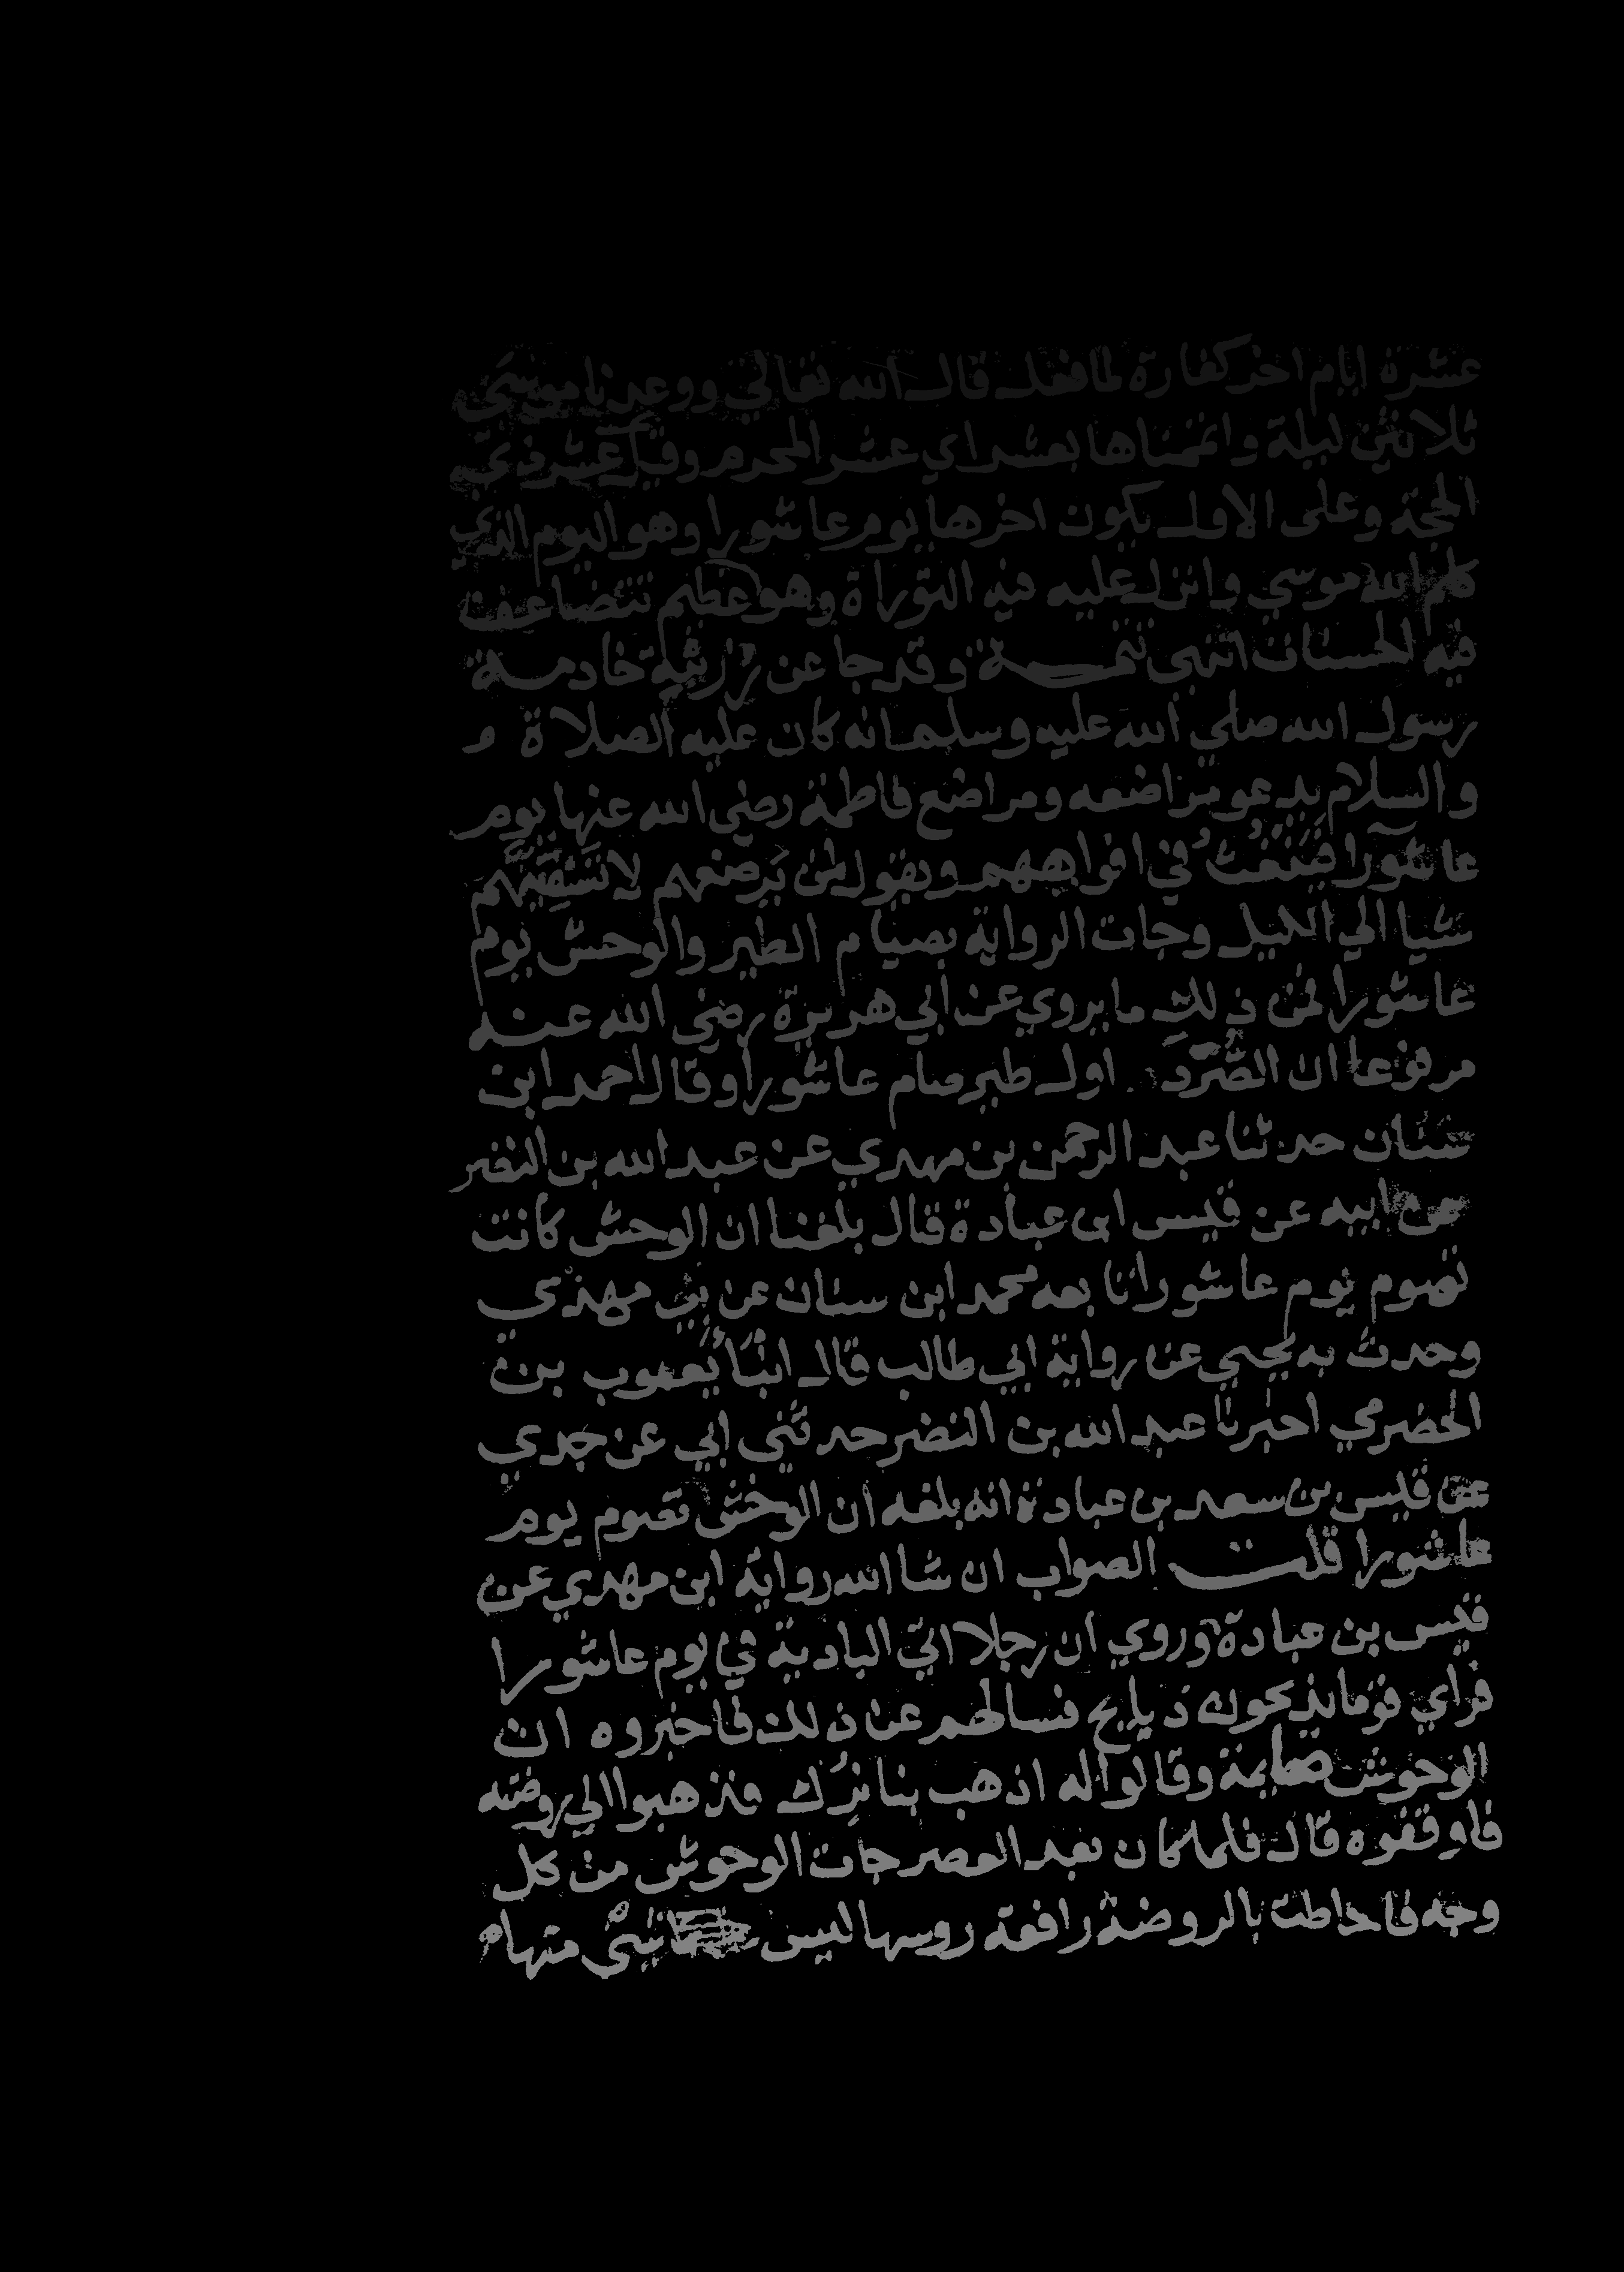 عشرة ايام اخر كفارة لما فعل قال الله تعالي ووعدنا موسي
ثلاثين ليلة واتممناها بعشر اي عشر المحرم وقيل عشر ذي
الحجة وعلى الاول يكون اخرها يوم عاشورا وهو اليوم الذي
كلم الله موسي وانزل عليه فيه التوراة وهو عظيم تتضاعف
فيه الحسنات انتهى تتمة وقد جا عن رزينة خادمة
رسول الله صلي الله عليه وسلم انه كان عليه الصلاة و
والسلام يدعو مراضعه ومراضع فاطمة رضي الله عنها يوم
عاشورا فينفث في افواههم ويقول لمن يرضعهم لا تسقيهم
شيا الي الليل وجات الرواية بصيام الطير والوحش يوم
عاشورا فمن ذلك ما يروي عن ابي هريرة رضي الله عنه
مرفوعا ان الصرد اول طير صام عاشورا وقال احمد ابن
سنان حدثنا عبد الرحمن بن مهدي عن عبد الله بن النضر
عن ابيه عن قيس ابن عبادة قال بلغنا ان الوحش كانت
تصوم يوم عاشورا تابعه محمد ابن سنان عن بن مهدي
وحدث به يحيي عن رواية ابي طالب قال انبأ يعقوب بن
الحضرمي اخبرنا عبد الله بن النضر حدثني ابي عن جدي
عن قيس بن سعد بن عبادة انه بلغه ان الوحش تصوم يوم
عاشورا قلت الصواب ان شا الله رواية ابن مهدي عن
قيس بن عبادة وروي ان رجلا اتي البادية في يوم عاشورا
فراي قوما يذبحون ذبايح فسالهم عن ذلك فاخبروه ان
الوحوش صايمة وقالوا له اذهب بنا نرك فذهبوا الي روضة
فاوقفوه قال فلما كان بعد العصر جات الوحوش من كل
وجه فاحاطت بالروضة رافعة روسها ليس شي منها